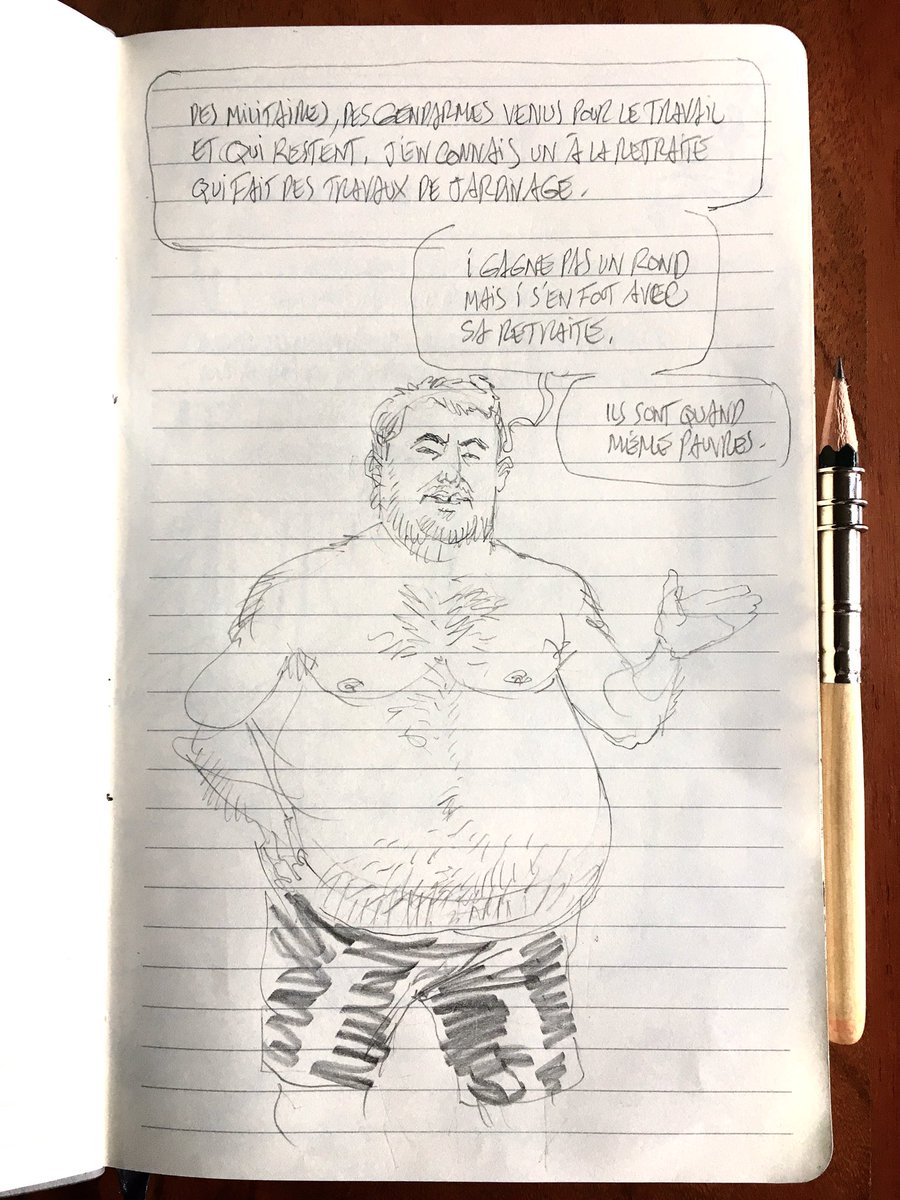 DES MILITAIRES, DES GENDARMES VENUS POUR LE TRAVAIL
ET QUI RESTENT. J'EN CONNAIS UN À LA RETRAITE
QUI FAIT DES TRAVAUX DE JARDINAGE.
I GAGNE PAS UN ROND
MAIS I S'EN FOUT AVEC
SA RETRAITE.
ILS SONT QUAND
MÊME PAUVRES.